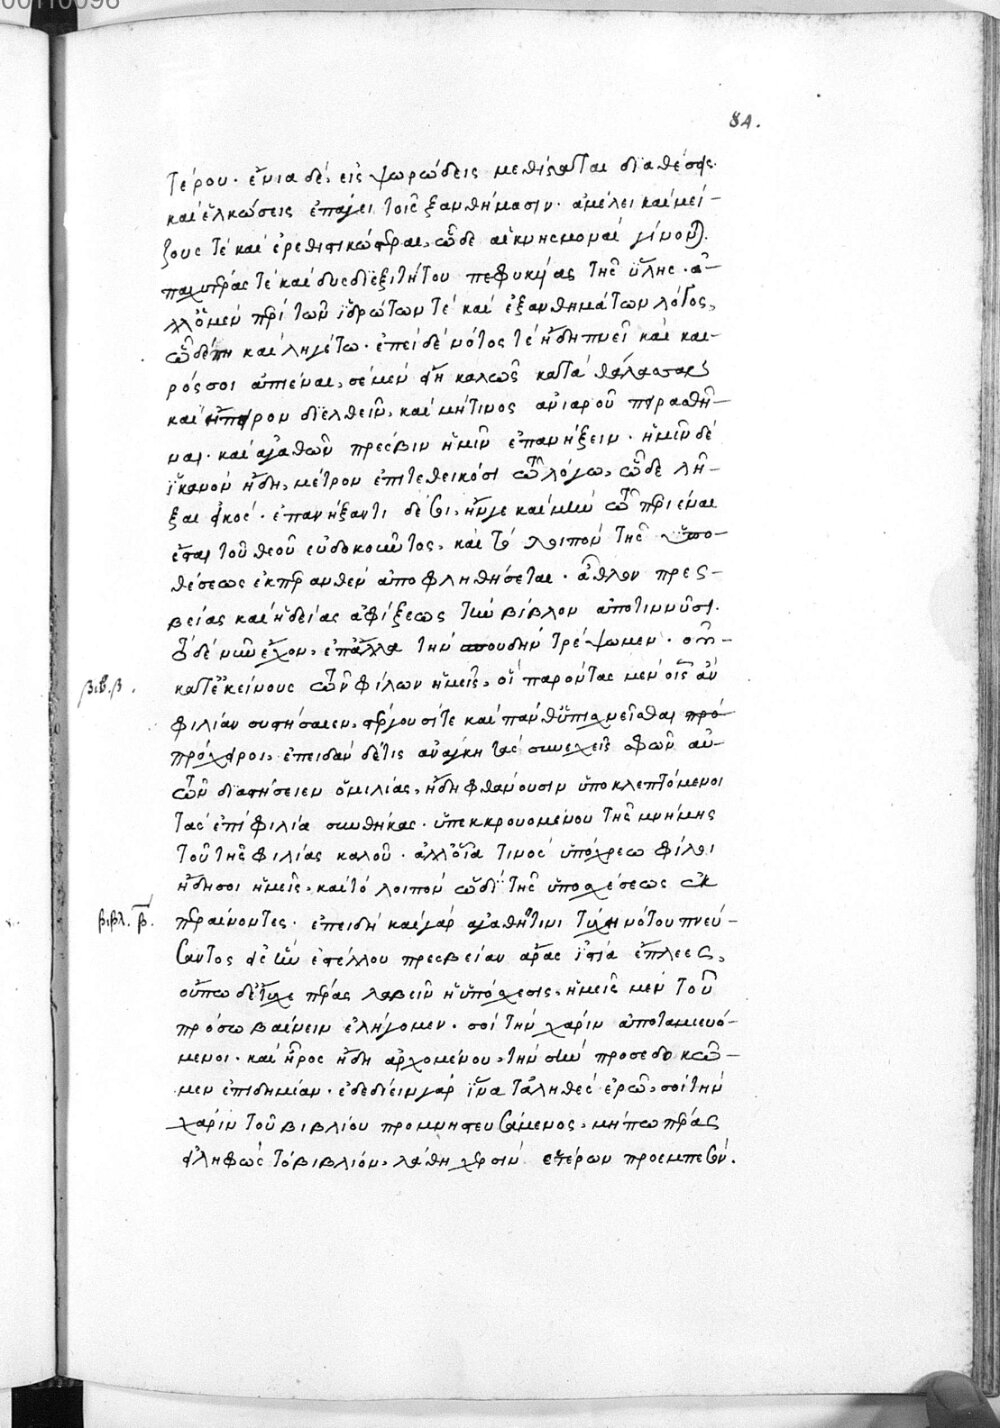 00110098
84.
τέρου· ἔνια δέ, εἰς ψωρώδεις μεθίσταται διαθέσεις·
καὶ ἑλκώσεις ἐπάγει τοῖς ἐξανθήμασιν· ἀμέλει καὶ μεί-
ζους τέ καὶ ἐρεθιστικώτεραι, ὧδε αἱ κνησμοναὶ γίνονται.
παχυτέρας τέ καὶ δυσδιεξιτήτου πεφυκυίας τῆς ὕλης· ἀ-
λλ' ὁ μέν περί τῶν ἱδρώτων τέ καὶ ἐξανθημάτων λόγος,
ὧδέ πη καὶ ληγέτω· ἐπεί δέ νότος τέ ἤδη πνεῖ καὶ και-
ρός σοι ἀπιέναι, σέ μέν εἴη καλῶς κατά θάλασσαν
καὶ ἤπειρον διελθεῖν, καὶ μή τινος ἀνιαροῦ πειραθῆ-
ναι· καὶ ἀγαθῶν πρέσβιν ἡμῖν ἐπανήξειν· ἡμῖν δέ
ἱκανόν ἤδη, μέτρον ἐπιτεθεικόσι τῷ λόγῳ, ὧδε λῆ-
ξαι εἰκός· ἐπανήξαντι δέ σοι,
ἔσται τοῦ θεοῦ εὐδοκοῦντος, καὶ τό λοιπόν τῆς ὑπο-
θέσεως ἐκπερανθέν ἀποφληθήσεται· ἆθλον πρεσ-
βείας καὶ ἡδείας ἀφίξεως τήν βίβλον ἀποτιννῦσι.
τό δέ νῦν ἔχον, ἐπ' ἄλλα τήν σπουδήν τρέψωμεν· οὐ
κατ' ἐκείνους τῶν φίλων ἡμεῖς, οἵ παρόντας μέν οἷς ἄν
φιλίαν συστήσαιεν, στέργουσί τε καὶ πάνθ' ὑπισχνεῖσθαι πρό
πρόχειροι, ἐπειδάν δέ τις ἀνάγκη τάς συνεχεῖς σφῶν αὐ-
τῶν διαστήσειεν ὁμιλίας, ἤδη φθάνουσιν ὑποκλεπτόμενοι
τάς ἐπί φιλίᾳ συνθήκας· ὑπεκκρουομένου τῆς μνήμης
τοῦ τῆς φιλίας καλοῦ· ἀλλ' οἷα τινος ὑπόχρεῳ φίλοι
ἤδη σοι ἡμεῖς, καὶ τό λοιπόν ὧδί τῆς ὑποσχέσεως ἐκ
βιβ. β.
περαίνοντες· ἐπειδή καὶ γάρ ἀγαθῇ τινι τύχῃ νότου πνεύ-
βιβλ. β.
σαντος ἐφ' ἥν ἐστέλλου πρεσβείαν ἄρας ἱστία ἔπλεες,
οὔπω δ' ἔτυχε πέρας λαβεῖν ἡ ὑπόσχεσις, ἡμεῖς μέν τοῦ
πρόσω βαίνειν ἐλήγομεν· σοί τήν χάριν ἀποταμιευό-
μενοι· καὶ ἦρος ἤδη ἀρχομένου, τήν σήν προσεδοκῶ-
μεν ἐπιδημίαν· ἐδεδίειν γάρ ἵνα τἀληθές ἐρῶ, σοί τήν
χάριν τοῦ βιβλίου προμνηστευσάμενος, μήπω πέρας
εἰληφώς τό βιβλίον, λάθῃ χερσίν ἑτέρων προεμπεσόν.